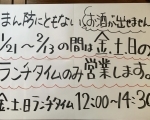 まん防にともない、お酒が出せません。
1/21～2/13の間は金.土.日の
ランチタイムのみ営業します。
金.土.日ランチタイム12:00～14:30